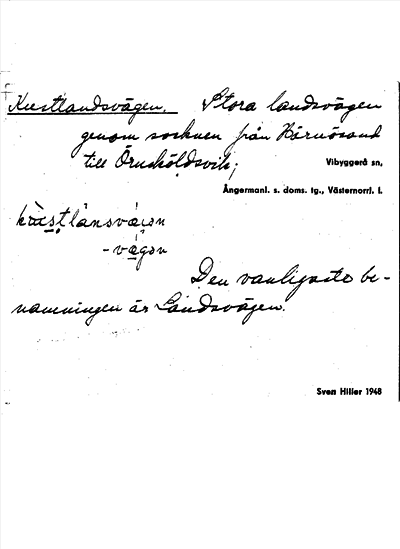 Kustlandsvägen. Stora landsvägen
genom socknen från Härnösand
till Örnsköldsvik;
Vibyggerå sn,
Ångermanl. s. doms. tg., Västernorrl. l.
-vägən
Den vanligaste be-
nämningen är Landsvägen.
Sven Hiller 1948